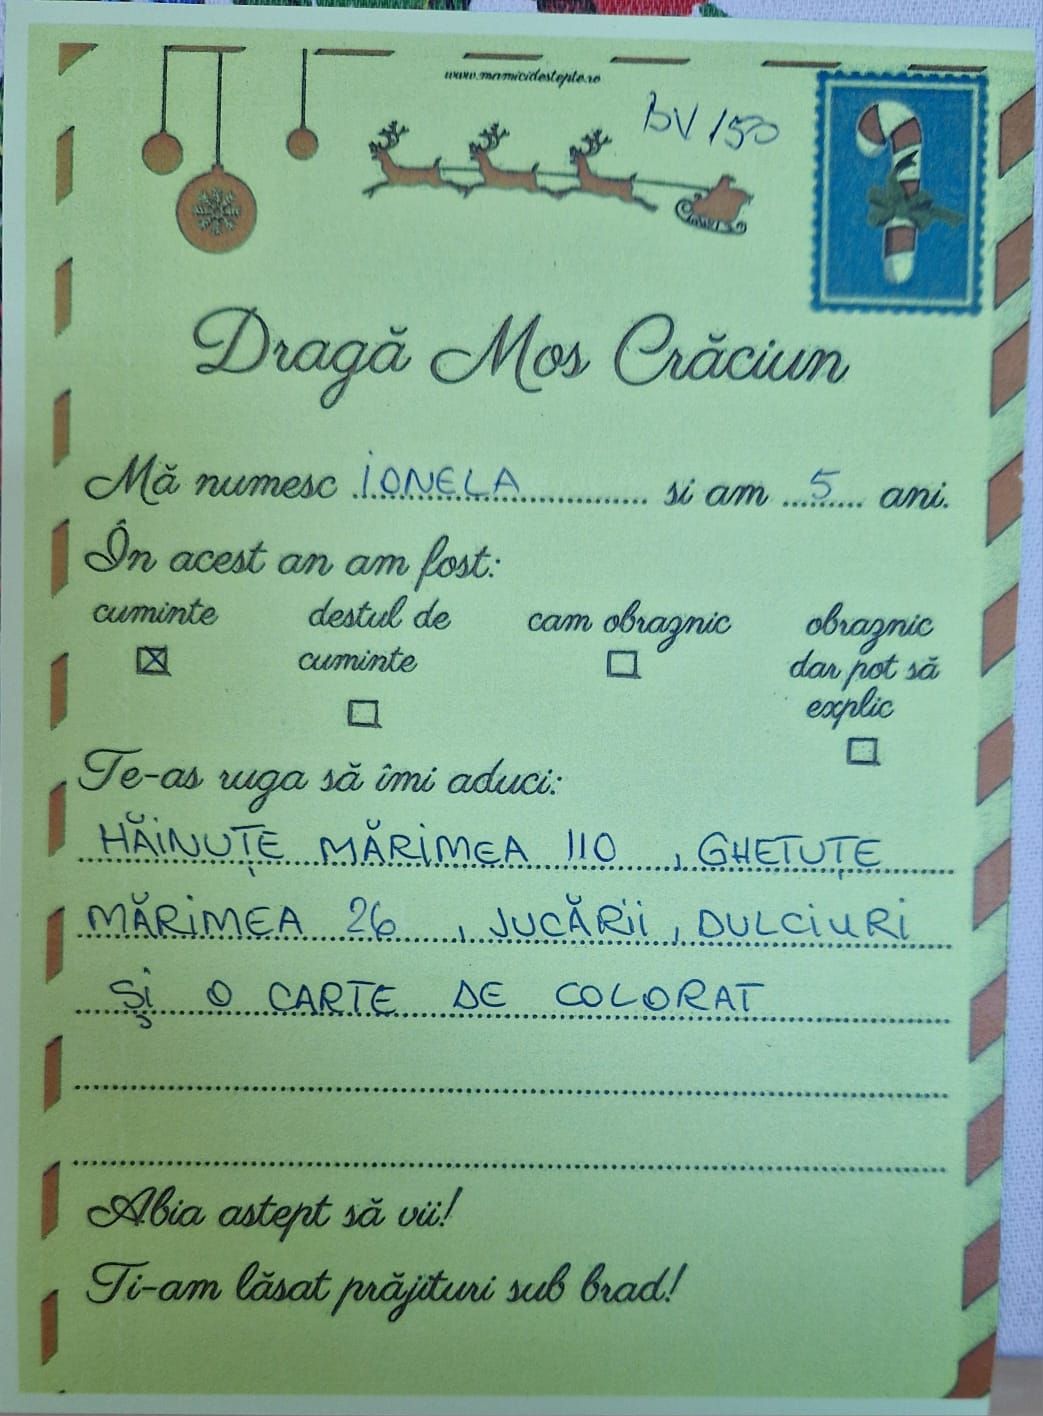 www.mamicidestepte.ro
BV 150
Dragă Mos Crăciun
Mă numesc IONELA si am 5 ani.
În acest an am fost:
cuminte destul de cuminte cam obraznic obraznic dar pot să explic
Te-as ruga să îmi aduci:
HĂINUȚE MĂRIMEA 110 , GHETUȚE
MĂRIMEA 26 , JUCĂRII , DULCIURI
ȘI O CARTE DE COLORAT
Abia astept să vii!
Ti-am lăsat prăjituri sub brad!